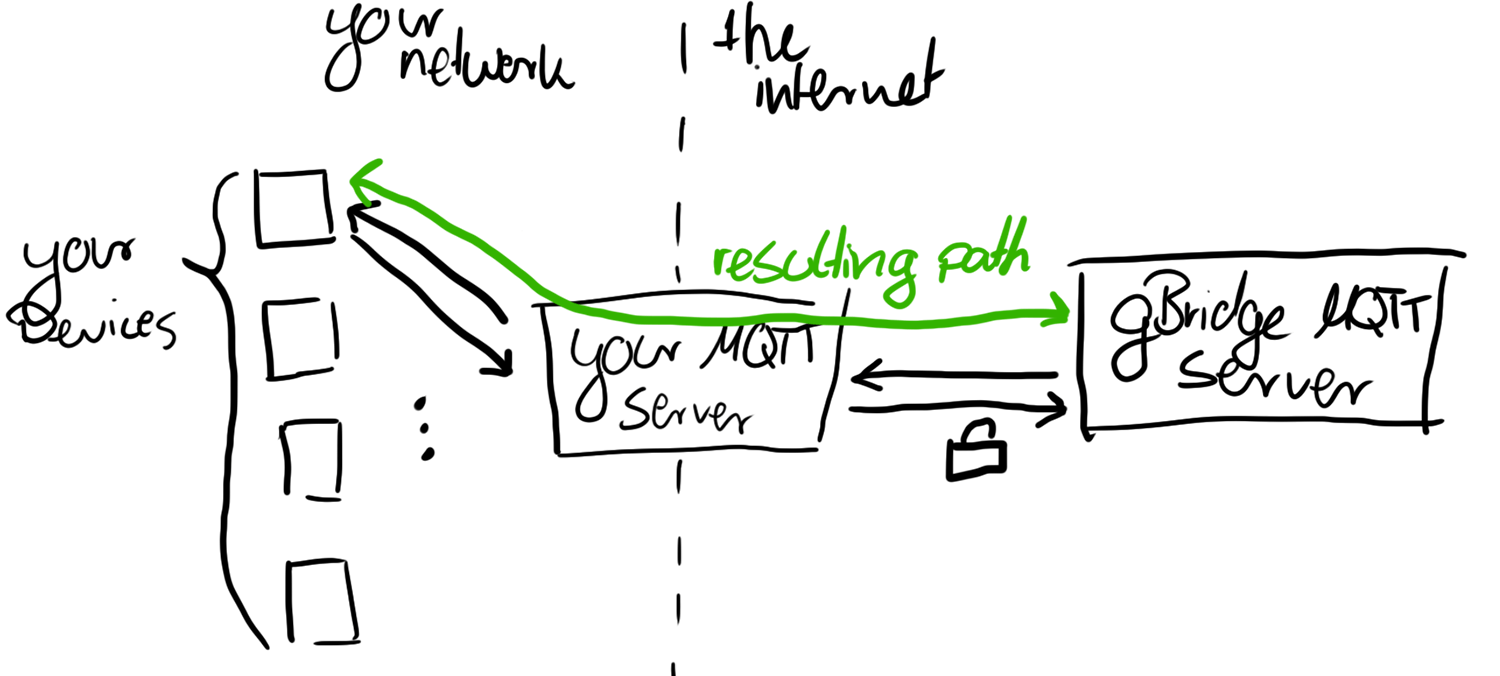 your
network
the
internet
your
Devices
resulting path
your MQTT
Server
gBridge MQTT
Server